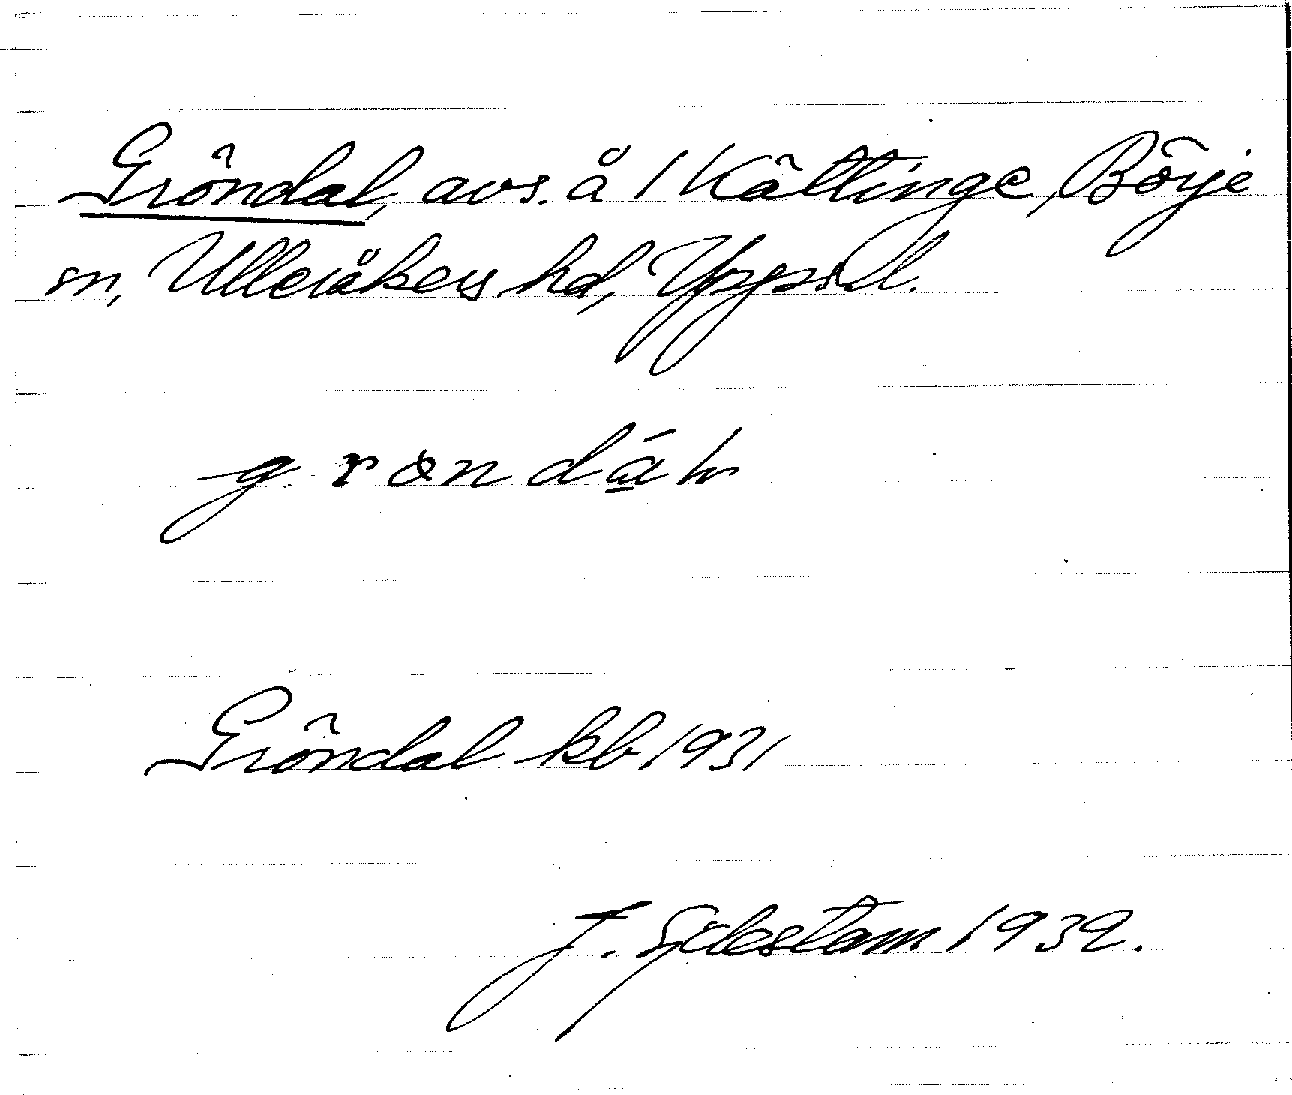 Gröndal, avs. å 1 Kättinge, Börje
sn, Ulleråkers hd, Upps. l.
Gröndal kb 1931
J. Sahlestam 1932.